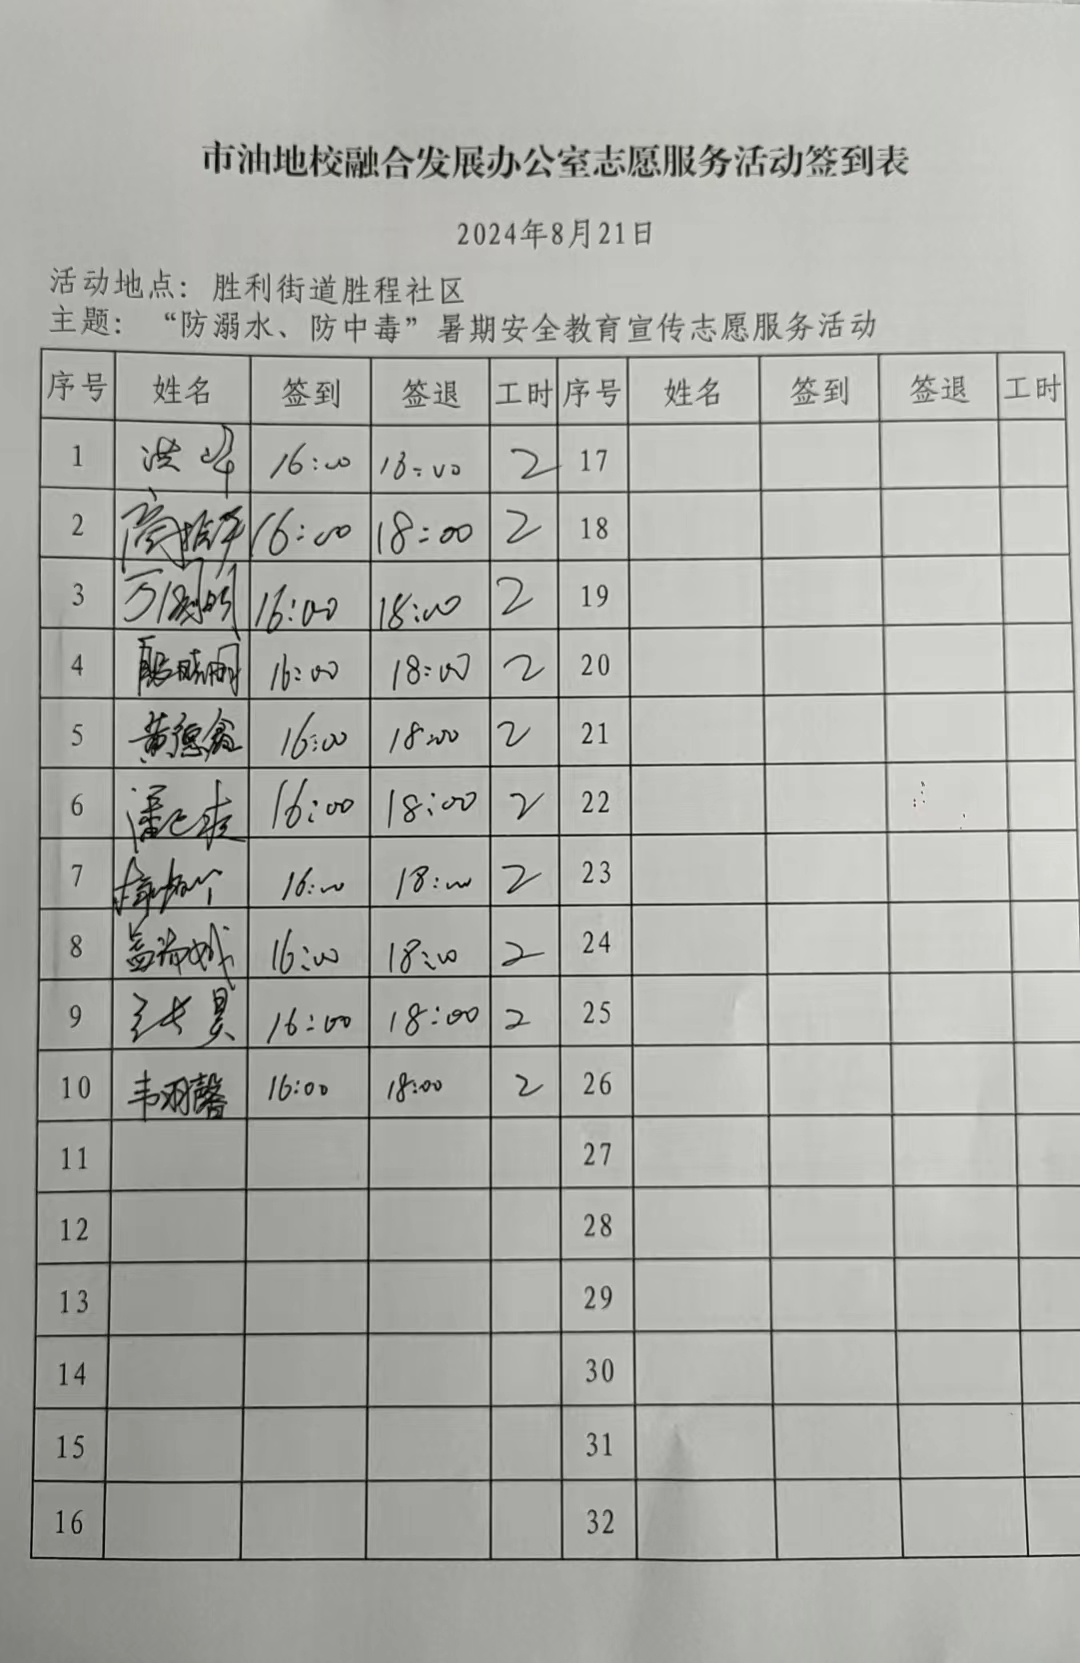 市油地校融合发展办公室志愿服务活动签到表
2024年8月21日
活动地点：胜利街道胜程社区
主题：“防溺水、防中毒”暑期安全教育宣传志愿服务活动
序号 姓名 签到 签退 工时 序号 姓名 签到 签退 工时
1 洪峰 16:00 18:00 2 17
2 16:00 18:00 2 18
3 16:00 18:00 2 19
4 16:00 18:00 2 20
5 黄德鑫 16:00 18:00 2 21
6 16:00 18:00 2 22
7 16:00 18:00 2 23
8 16:00 18:00 2 24
9 16:00 18:00 2 25
10 韦羽馨 16:00 18:00 2 26
11 27
12 28
13 29
14 30
15 31
16 32